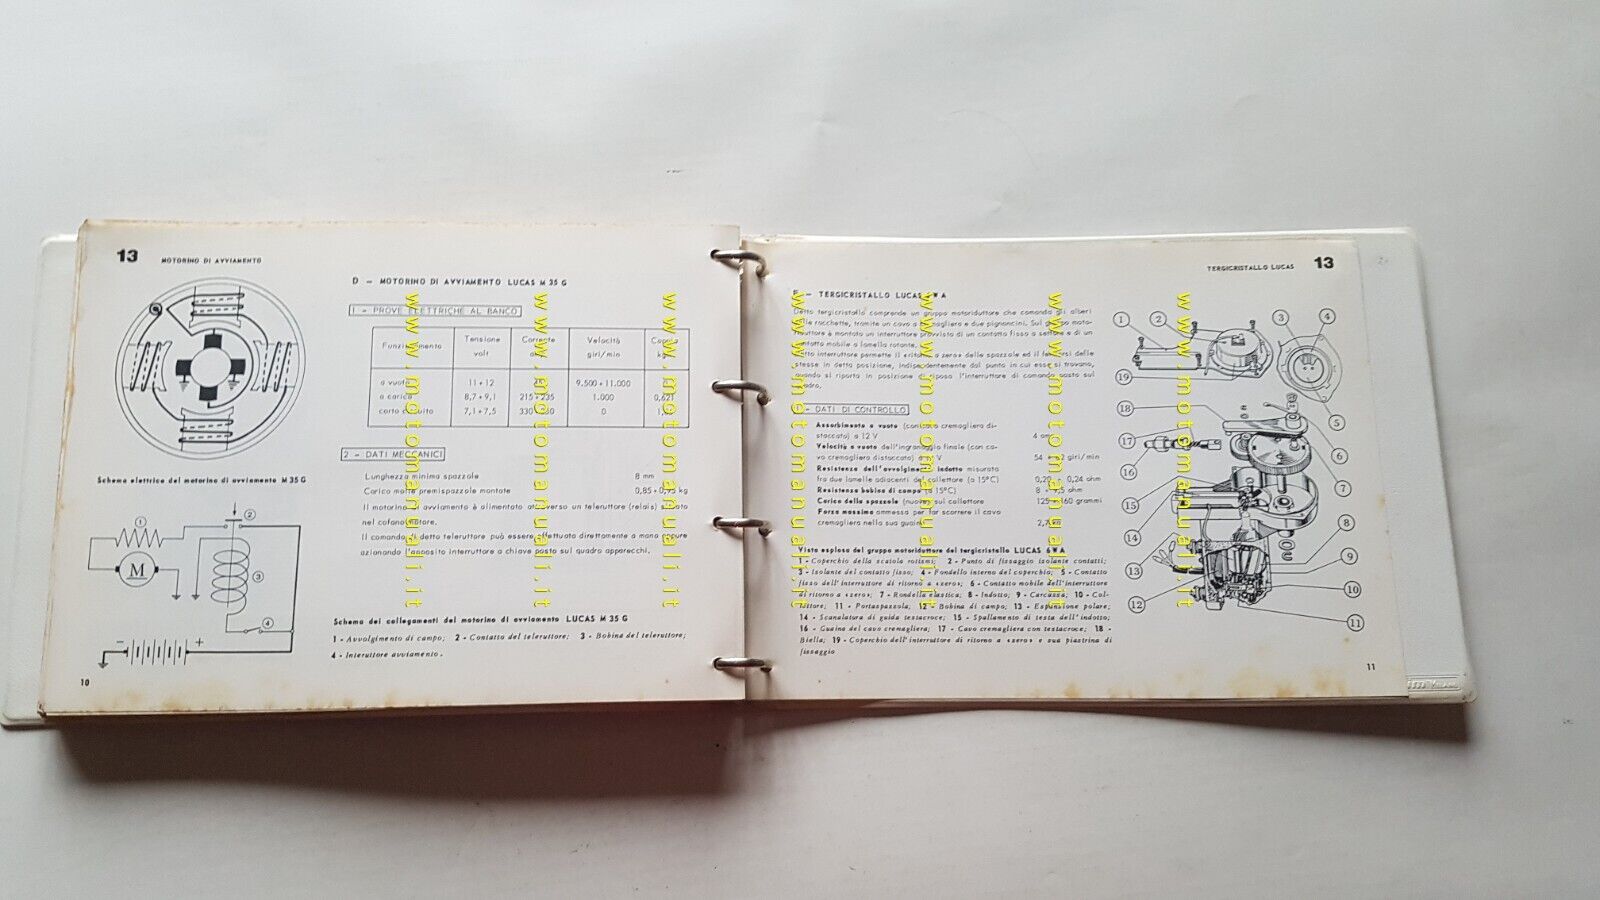 13 MOTORINO DI AVVIAMENTO
D - MOTORINO DI AVVIAMENTO LUCAS M 35 G
1 - PROVE ELETTRICHE AL BANCO
Funzionamento Tensione volt Corrente Velocità giri/min
a vuoto 11 ÷ 12 9.500 ÷ 11.000
a carico 8,7 ÷ 9,1 215 ÷ 235 1.000 0,621
corto circuito 7,1 ÷ 7,5 0
2 - DATI MECCANICI
Lunghezza minima spazzole 8 mm
Carico molle premispazzole montate 0,85 ÷ kg
Il motorino di avviamento è alimentato attraverso un teleruttore (relais) situato
nel cofano motore.
Il comando di detto teleruttore può essere effettuato direttamente a mano oppure
azionando l'apposito interruttore a chiave posto sul quadro apparecchi.
Schema elettrico del motorino di avviamento M 35 G
1
2
M
3
4
- +
Schema dei collegamenti del motorino di avviamento LUCAS M 35 G
1 - Avvolgimento di campo; 2 - Contatto del teleruttore; 3 - Bobina del teleruttore;
4 - Interuttore avviamento.
10
TERGICRISTALLO LUCAS 13
TERGICRISTALLO LUCAS WA
Detto tergicristallo comprende un gruppo motoriduttore che comanda gli alberi
delle racchette, tramite un cavo a cremagliera e due pignoncini. Sul gruppo moto-
riduttore è montato un interruttore provvisto di un contatto fisso a settore e di un
contatto mobile a lamella rotante.
Detto interruttore permette il «ritorno a zero» delle spazzole ed il fermarsi delle
stesse in detta posizione, indipendentemente dal punto in cui esse si trovano,
quando si riporta in posizione di riposo l'interruttore di comando posto sul
quadro.
- DATI DI CONTROLLO
Assorbimento a vuoto (con cavo cremagliera di-
staccato) a 12 V 4 amp
Velocità a vuoto dell'ingranaggio finale (con ca-
vo cremagliera distaccato) a V 54 ÷ giri/min
Resistenza dell'avvolgimento indotto misurata
fra due lamelle adiacenti del collettore (a 15°C) 0,20 ÷ 0,24 ohm
Resistenza bobina di campo (a 15°C) 8 ÷ ohm
Carico delle spazzole (nuove) sul collettore 125 ÷ grammi
Forza massima ammessa per far scorrere il cavo
cremagliera nella sua guaina kg
Vista esplosa del gruppo motoriduttore del tergicristallo LUCAS 6WA
1 - Coperchio della scatola rotismi; 2 - Punto di fissaggio isolante contatti;
3 - Isolante del contatto fisso; 4 - Fondello interno del coperchio; 5 - Contatto
fisso dell'interruttore di ritorno a «zero»; 6 - Contatto mobile dell'interruttore
di ritorno a «zero»; 7 - Rondella elastica; 8 - Indotto; 9 - Carcassa; 10 - Col-
lettore; 11 - Portaspazzola; 12 - Bobina di campo; 13 - Espansione polare;
14 - Scanalatura di guida testacroce; 15 - Spallamento di testa dell'indotto;
16 - Guaina del cavo cremagliera; 17 - Cavo cremagliera con testacroce; 18 -
Biella; 19 - Coperchio dell'interruttore di ritorno a «zero» e sua piastrina di
fissaggio
1
2
3
4
19
18
5
17
6
16
7
15
14
8
13
9
12
10
11
11
www.motomanuali.it
www.motomanuali.it
www.motomanuali.it
www.motomanuali.it
www.motomanuali.it
www.motomanuali.it
www.motomanuali.it